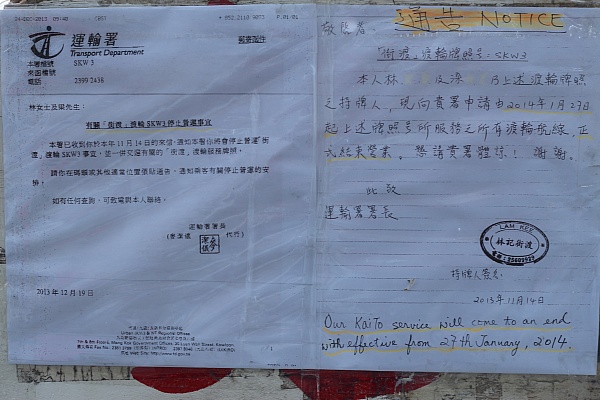 24-DEC-2013 09:40
CBST
+852 2110 9071
P.01/01
運輸署
Transport Department
郵寄函件
本署檔號 SKW 3
來函檔號
電話 2399 2438
林女士及梁先生：
有關「街渡」渡輪 SKW3 停止營運事宜
本署已收到你於本年11月14日的來信，通知本署你將會停止營運「街
渡」渡輪 SKW3 事宜，並一併交還有關的「街渡」渡輪服務牌照。
請你在碼頭或其他適當位置張貼通告，通知乘客有關停止營運的安
排。
如有任何查詢，可致電與本人聯絡。
運輸署署長
代行)
2013年12月19日
Urban (KLN) & NT Regional Offices
7th & 8th Floors, Mong Kok Government Offices, 30 Luen Wan Street, Kowloon
敬啟者：
通告 NOTICE
「街渡」渡輪牌照號：SKW3
本人林 及梁 乃上述渡輪牌照
之持牌人，現向貴署申請由2014年1月27日
起上述牌照号所服務之所有渡輪航線，正
式結束營業。懇請貴署體諒！謝謝。
此致
運輸署署長
LAM KEE
林記街渡
持牌人簽名
2013年11月14日
Our KaiTo service will come to an end
with effective from 27th January, 2014.